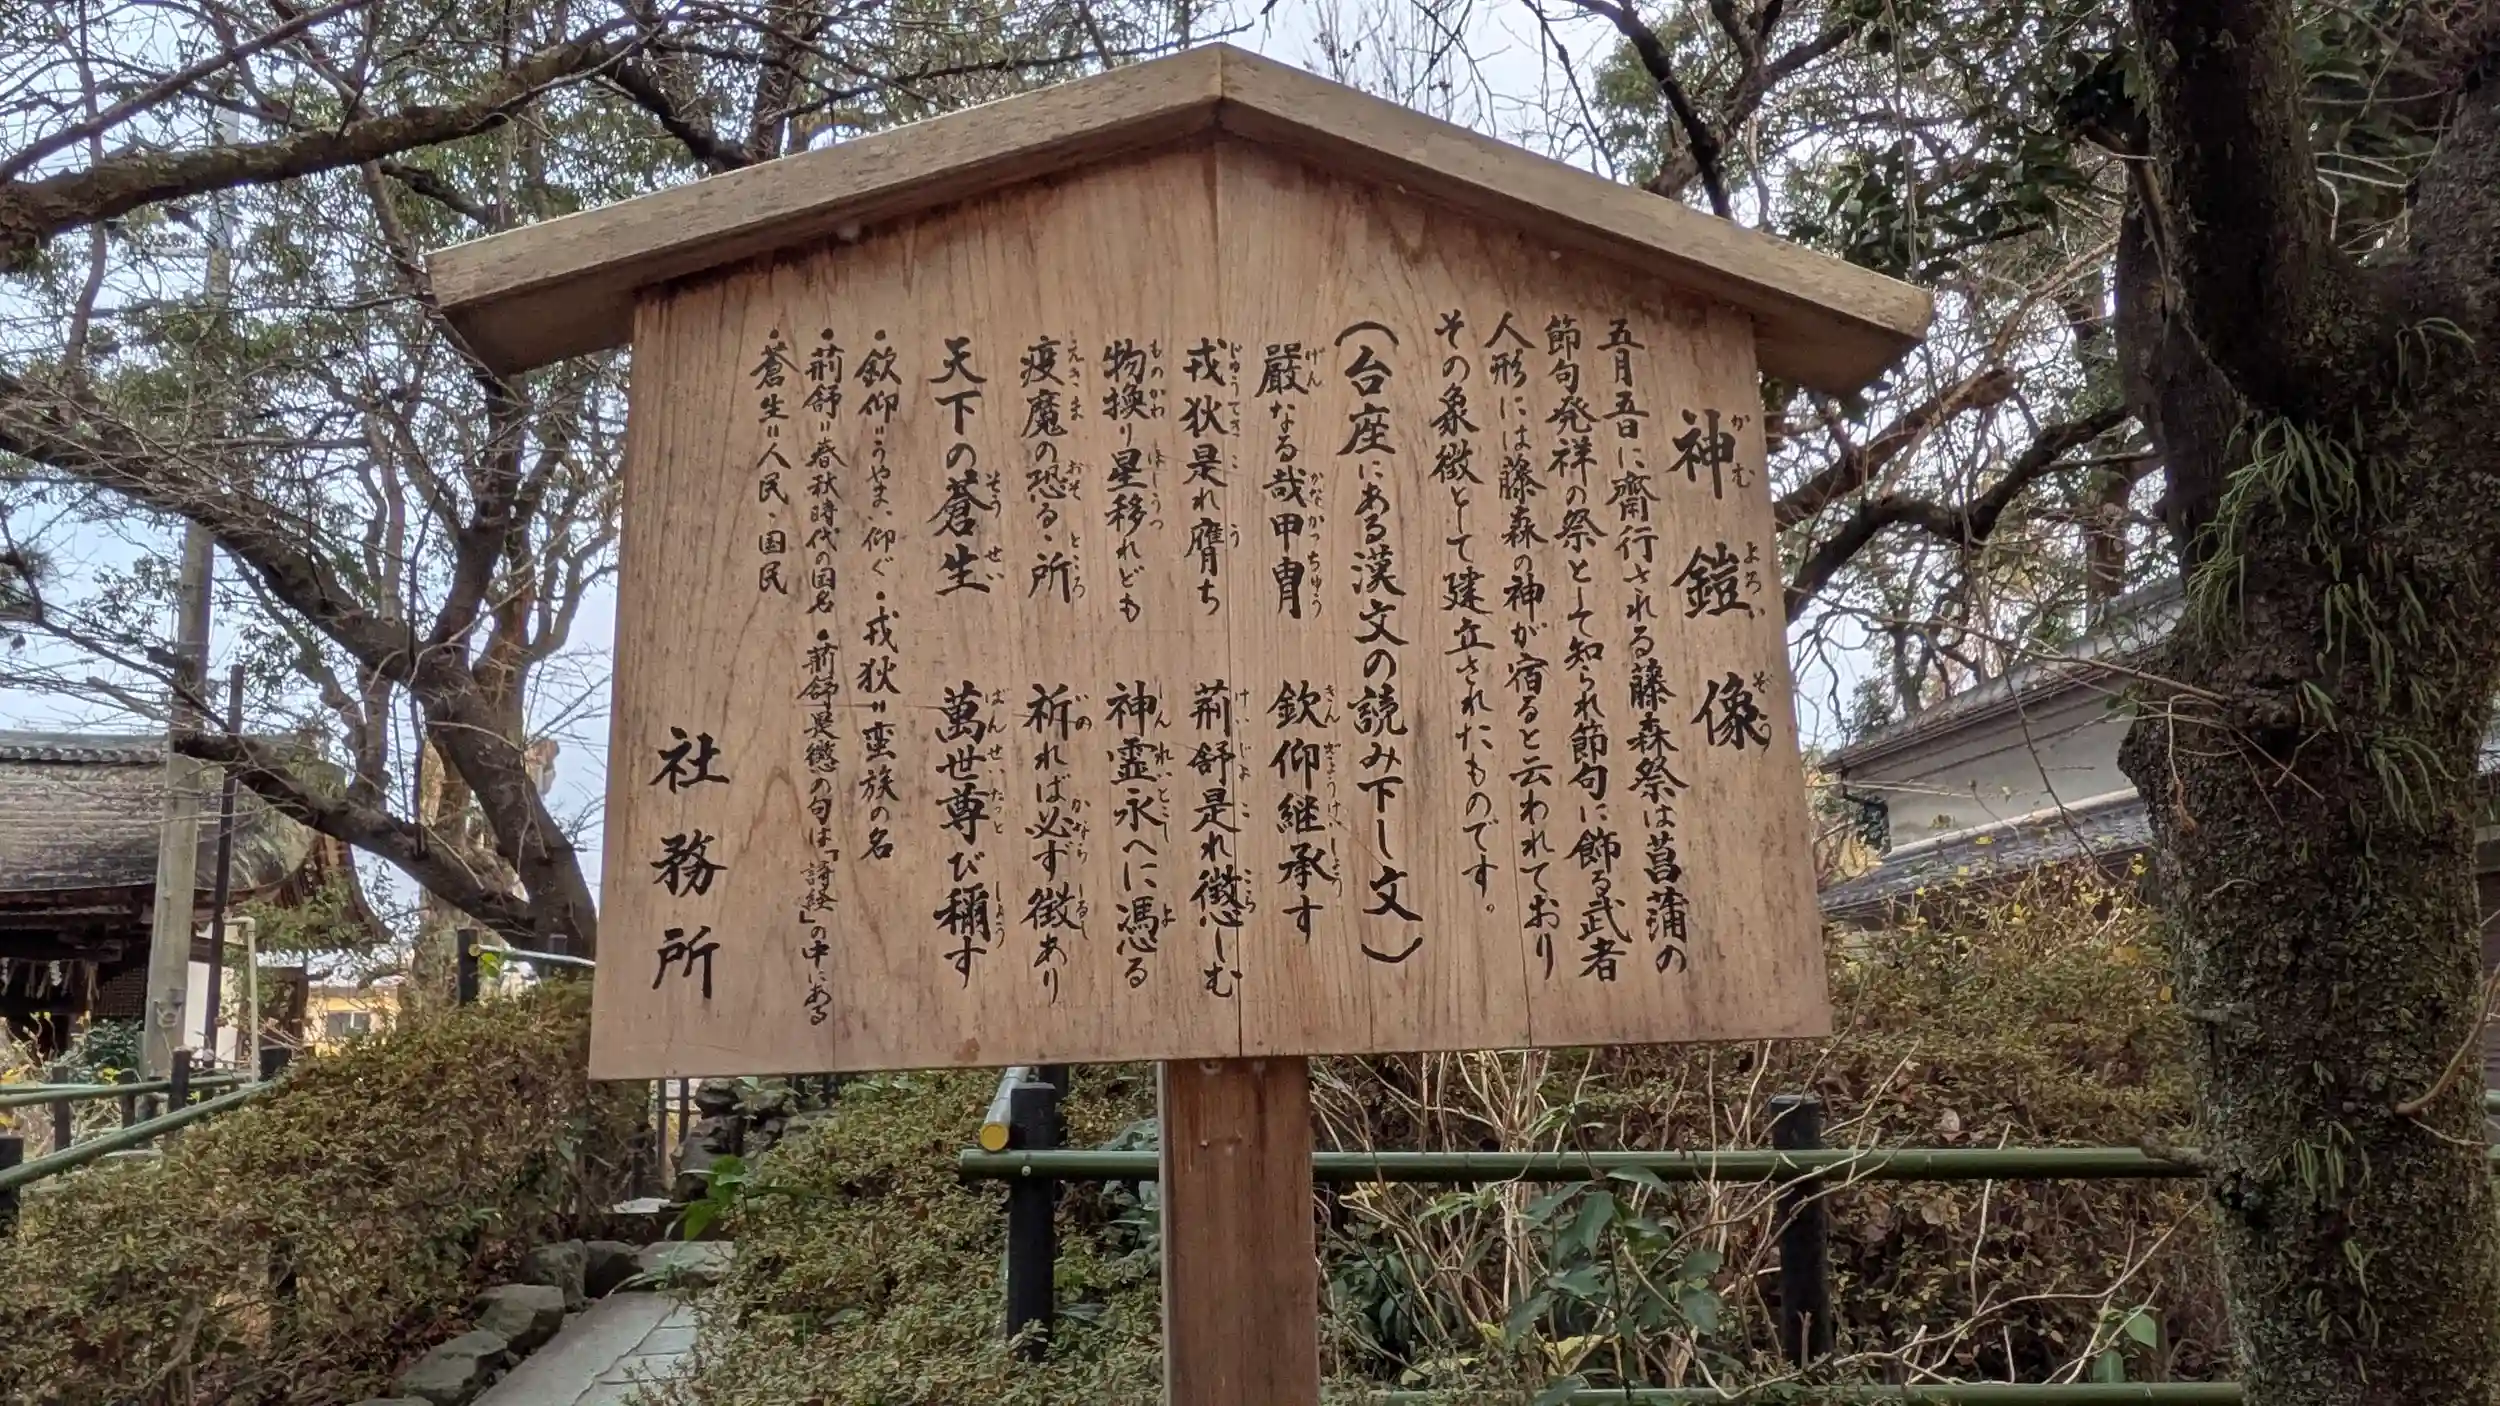 神鎧像
五月五日に齋行される藤森祭は菖蒲の
節句発祥の祭として知られ節句に飾る武者
人形には藤森の神が宿ると云われており
その象徴として建立されたものです。
(台座にある漢文の読み下し文)
嚴なる哉甲冑 欽仰継承す
戎狄是れ膺ち 荊舒是れ懲しむ
物換り星移れども 神霊永へに憑る
疫魔の恐る、所 祈れば必ず徴あり
天下の蒼生 萬世尊び稱す
・欽仰=うやま、仰ぐ・戎狄=蛮族の名
・荊舒=春秋時代の国名・荊舒是懲の句は「詩経」の中にある
・蒼生=人民、国民
社務所